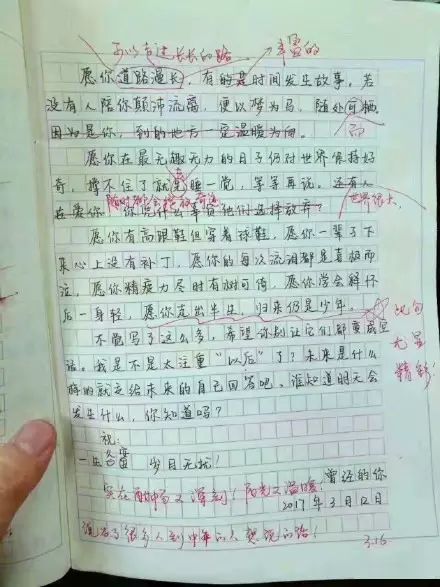 可以奇迹长长的路 丰富的
愿你道路漫长,有的是时间发生故事。若
没有人陪你颠沛流离,便以梦为马,随处可栖。
因为是你,到的地方一定温暖为向。
而
愿你在最无趣无力的日子仍对世界保持好
奇,撑不住了就先睡一觉,等等再说。还有人
世界很大,
在爱你,你凭什么辜负他们选择放弃?
愿你有高跟鞋但穿着球鞋,愿你一辈子下
来心上没有补丁,愿你的每次流泪都是喜极而
泣,愿你精疲力尽时有树可倚,愿你学会释怀
后一身轻,愿你走出半生,归来仍是少年。
此句
不能写了这么多,希望你别让它们都变成空
尤显
话。我是不是太注重“以后”了?未来是什么
精彩!
样的就交给未来的自己回答吧。谁知道明天会
发生什么,你知道吗?
祝:
一生 岁月无忧!
实在 又深刻!阳光又温暖,
曾经的你
2017年3月12日
很多人到中年的人
3.16